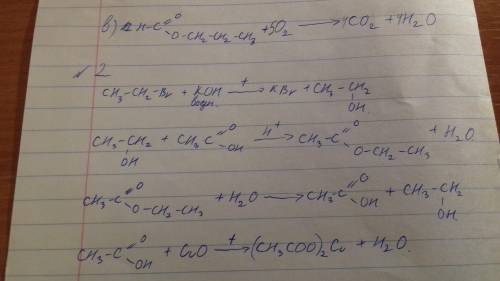 в) H-C(=O)-O-CH₂-CH₂-CH₃ + 5O₂ → 4CO₂ + 4H₂O
√2
CH₃-CH₂-Br + KOH водн. –t→ KBr + CH₃-CH₂-OH
CH₃-CH₂-OH + CH₃-C(=O)-OH –H⁺→ CH₃-C(=O)-O-CH₂-CH₃ + H₂O
CH₃-C(=O)-O-CH₂-CH₃ + H₂O → CH₃-C(=O)-OH + CH₃-CH₂-OH
CH₃-C(=O)-OH + CuO –t→ (CH₃COO)₂Cu + H₂O.